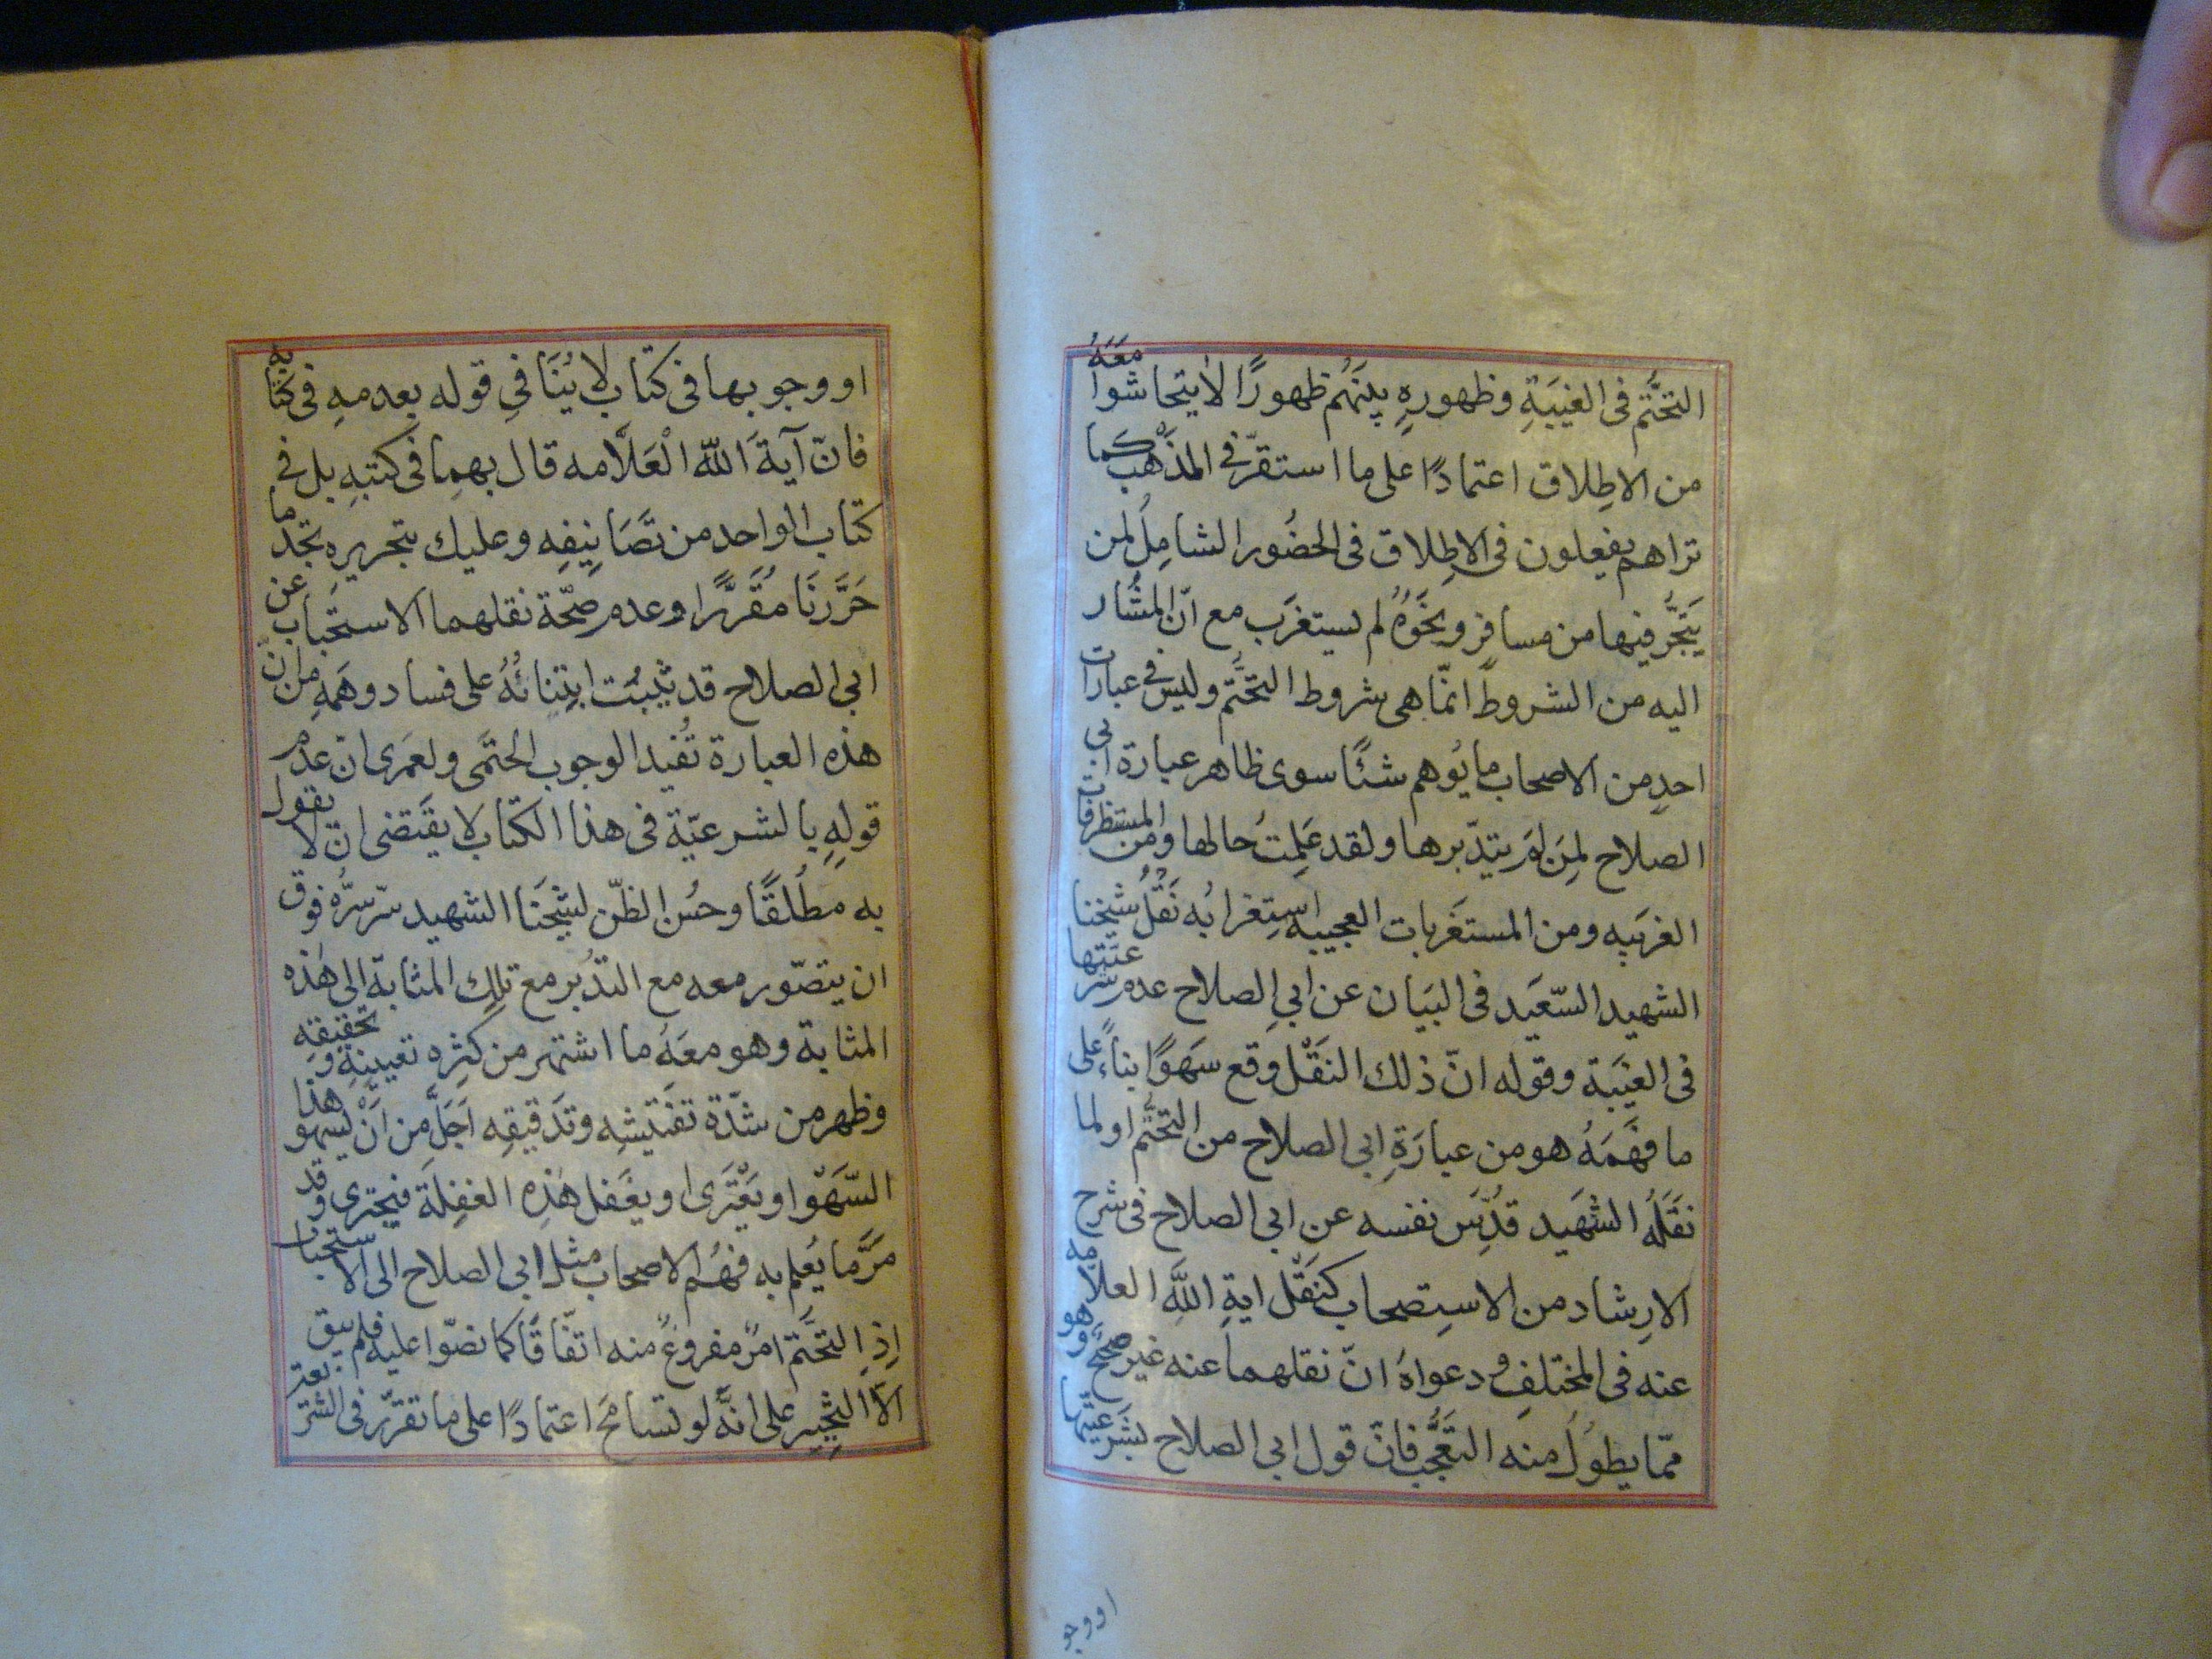 التحتّم فى الغيبَةِ وظهورِهِ بينَهُم ظهورًا لا يتحاشوا معَهُ
من الاطِلاق اعتمادًا على ما استقرّ فى المذْهَب كما
تراهم يفعلون فى الاطِلاق فى الحضُور الشامِلُ لمن
فيها من مسافر ونحَوُهُ لم يستغرَب مع انّ المشُار
اليه من الشروط انمّا هى شروط التحَّتم وليس فى عبارات
احدٍ من الاصحاب ما يُوهم شئًا سوى ظاهر عبارة ابى
الصلاح لِمنَ لم يتدّبرها ولقد عَلِمتُ حالها ومن المستظرفات
الغريَبِه ومن المستغَربات العجيبه استِغرابُه نَقُلُ شيخنا
الشهيد السّعَيد فى البيَان عن ابىِ الصلاح عدم شرعيّتها
فى الغيَبَة وقوله انّ ذلك النقَل وقع سَهوًا بناءً على
ما فهَمَهُ هو من عبارَةِ ابى الصلاح من التحَّتم او لما
نقَلَهُ الشهَيد قدُّسَ نفسه عن ابى الصلاح فى شرح
الارِشاد من الاستِصحاب كنَقَل ايةِ اللَّهِ العلاّمه
عنه فى المختلفِ و دعواهُ انّ نقلهما عنه غير صحَيح وهو
ممّا يطوُلُ منه التعَّجُب فانّ قول ابى الصلاح بشَرعيّتها
او وجو
او وجوبها فى كتاب لا يُنَافىِ قوله بعدمهِ فى كتابه
فانّ آيةَ اللّه الْعَلاَّمه قال بهِما فى كتبهِ بل فى
كتاب الواحد من تصَانِيفهِ وعليك بتحريره تجد ما
حَرَّرنَا مُقَرَّرًا وعدم صحّة نقلهما الاستحَباب عن
ابى الصلاح قد ثبتَ ابتِنائُهُ على فساد وهَمهِ من انّ
هذه العبارة تفُيد الوجوب الحتمَى ولعمَرى انّ عدم
قولهِ بالشرعيّة فى هذا الكتاب لا يقَتضى ان لا يقول
به مطُلقًا وحسُن الظنّ لشيخَنا الشهيد سّر سّرُه فوق
ان يتصّور معه مع التدّبر مع تلِك المثابة الى هٰذه
المثابة وهو معَهُ ما اشتهر من كثِره تعيينِهِ و تحقيقِهِ
وظهر من شدّة تفَتيشهِ وتدَقيقهِ اَجَلَّ من اَنْ يسَهو هذا
السّهَوْ او يَعْترَى او يغَفل هٰذِه الغفِلَة فيجترى وقد
مَرَّ ما يُعلم به فهُم الاصحاب مثل ابى الصلاح الى الاستحباب
اِذِ التحَّتم امرٌ مفروغٌ منه اتفّاقًا كما نصّوا عليه فلم يبق
الاّ التخِيير على انَّه لو تسَامحَ اعتمادًا على ما تقرّر فى الشر